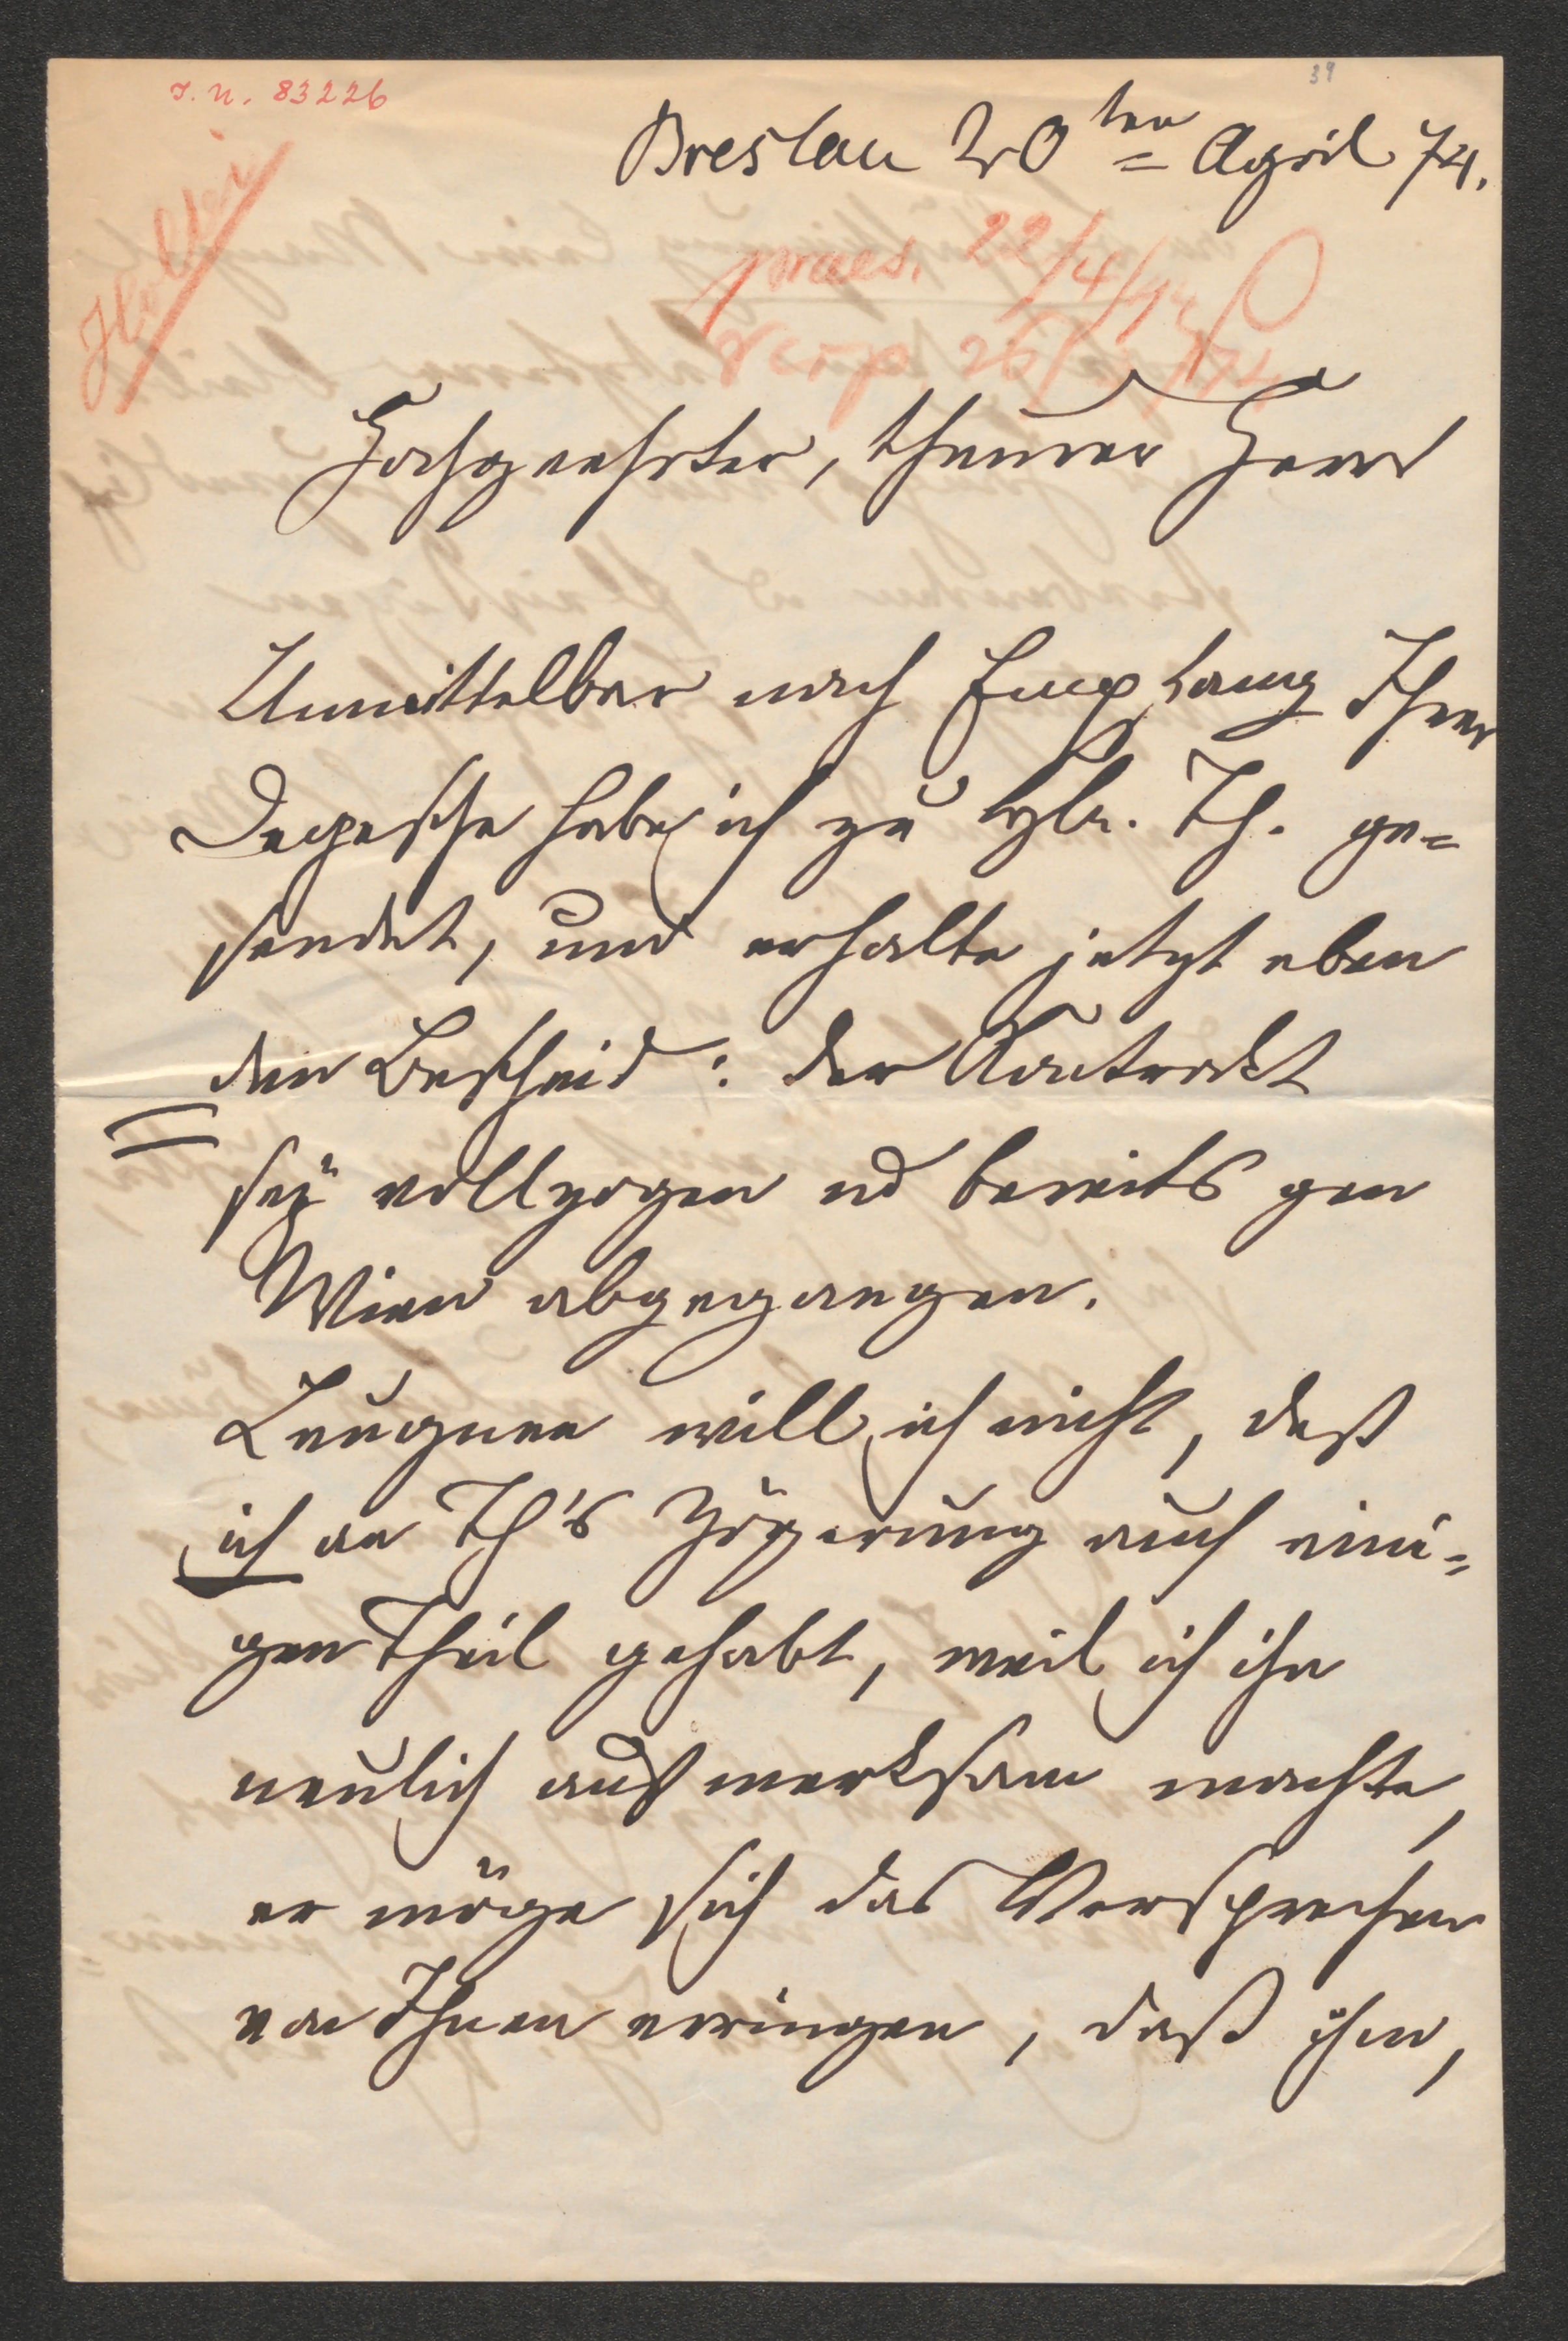 I. N. 83226
39
Breslau 20ten April 74.
Holtei
praes. 22/4/74
resp. 26/4/74
Hochgeehrter, theurer Herr
Unmittelbar nach Empfang Ihrer
Depesche habe ich zu Th. ge=
sendet, und erhalte jetzt eben
den Bescheid: der Contrakt
sey vollzogen ud bereits gen
Wien abgegangen.
Leugnen will ich nicht, daß
ich an Th's Zögerung auch eini=
gen Theil gehabt, weil ich ihn
neulich aufmerksam machte,
er möge sich das Versprechen
von Ihnen erringen, daß ihm,